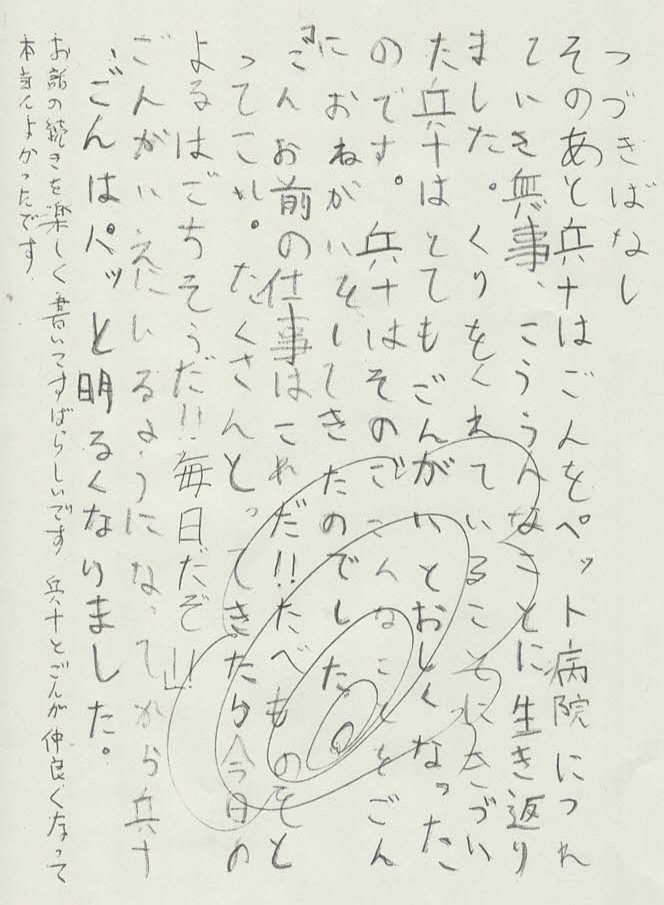 つづきばなし
そのあと兵十はごんをペット病院につれ
ていき無事、こううんなことに生き返り
ました。くりをくれていることにきづい
た兵十はとてもごんがいとおしくなったた
のです。兵十はそのごこんなことをごん
におねがいをしてきたのでした。
「ごんお前の仕事はこれだ!!たべものをと
ってこい。たくさんとってきたら今日の
よるはごちそうだ!!毎日だぞ!!」
ごんがいえにいるようになってから兵十
ごんはパッと明るくなりました。
お話の続きを楽しく書いてすばらしいです。兵十とごんが仲良くなって
本当によかったです。